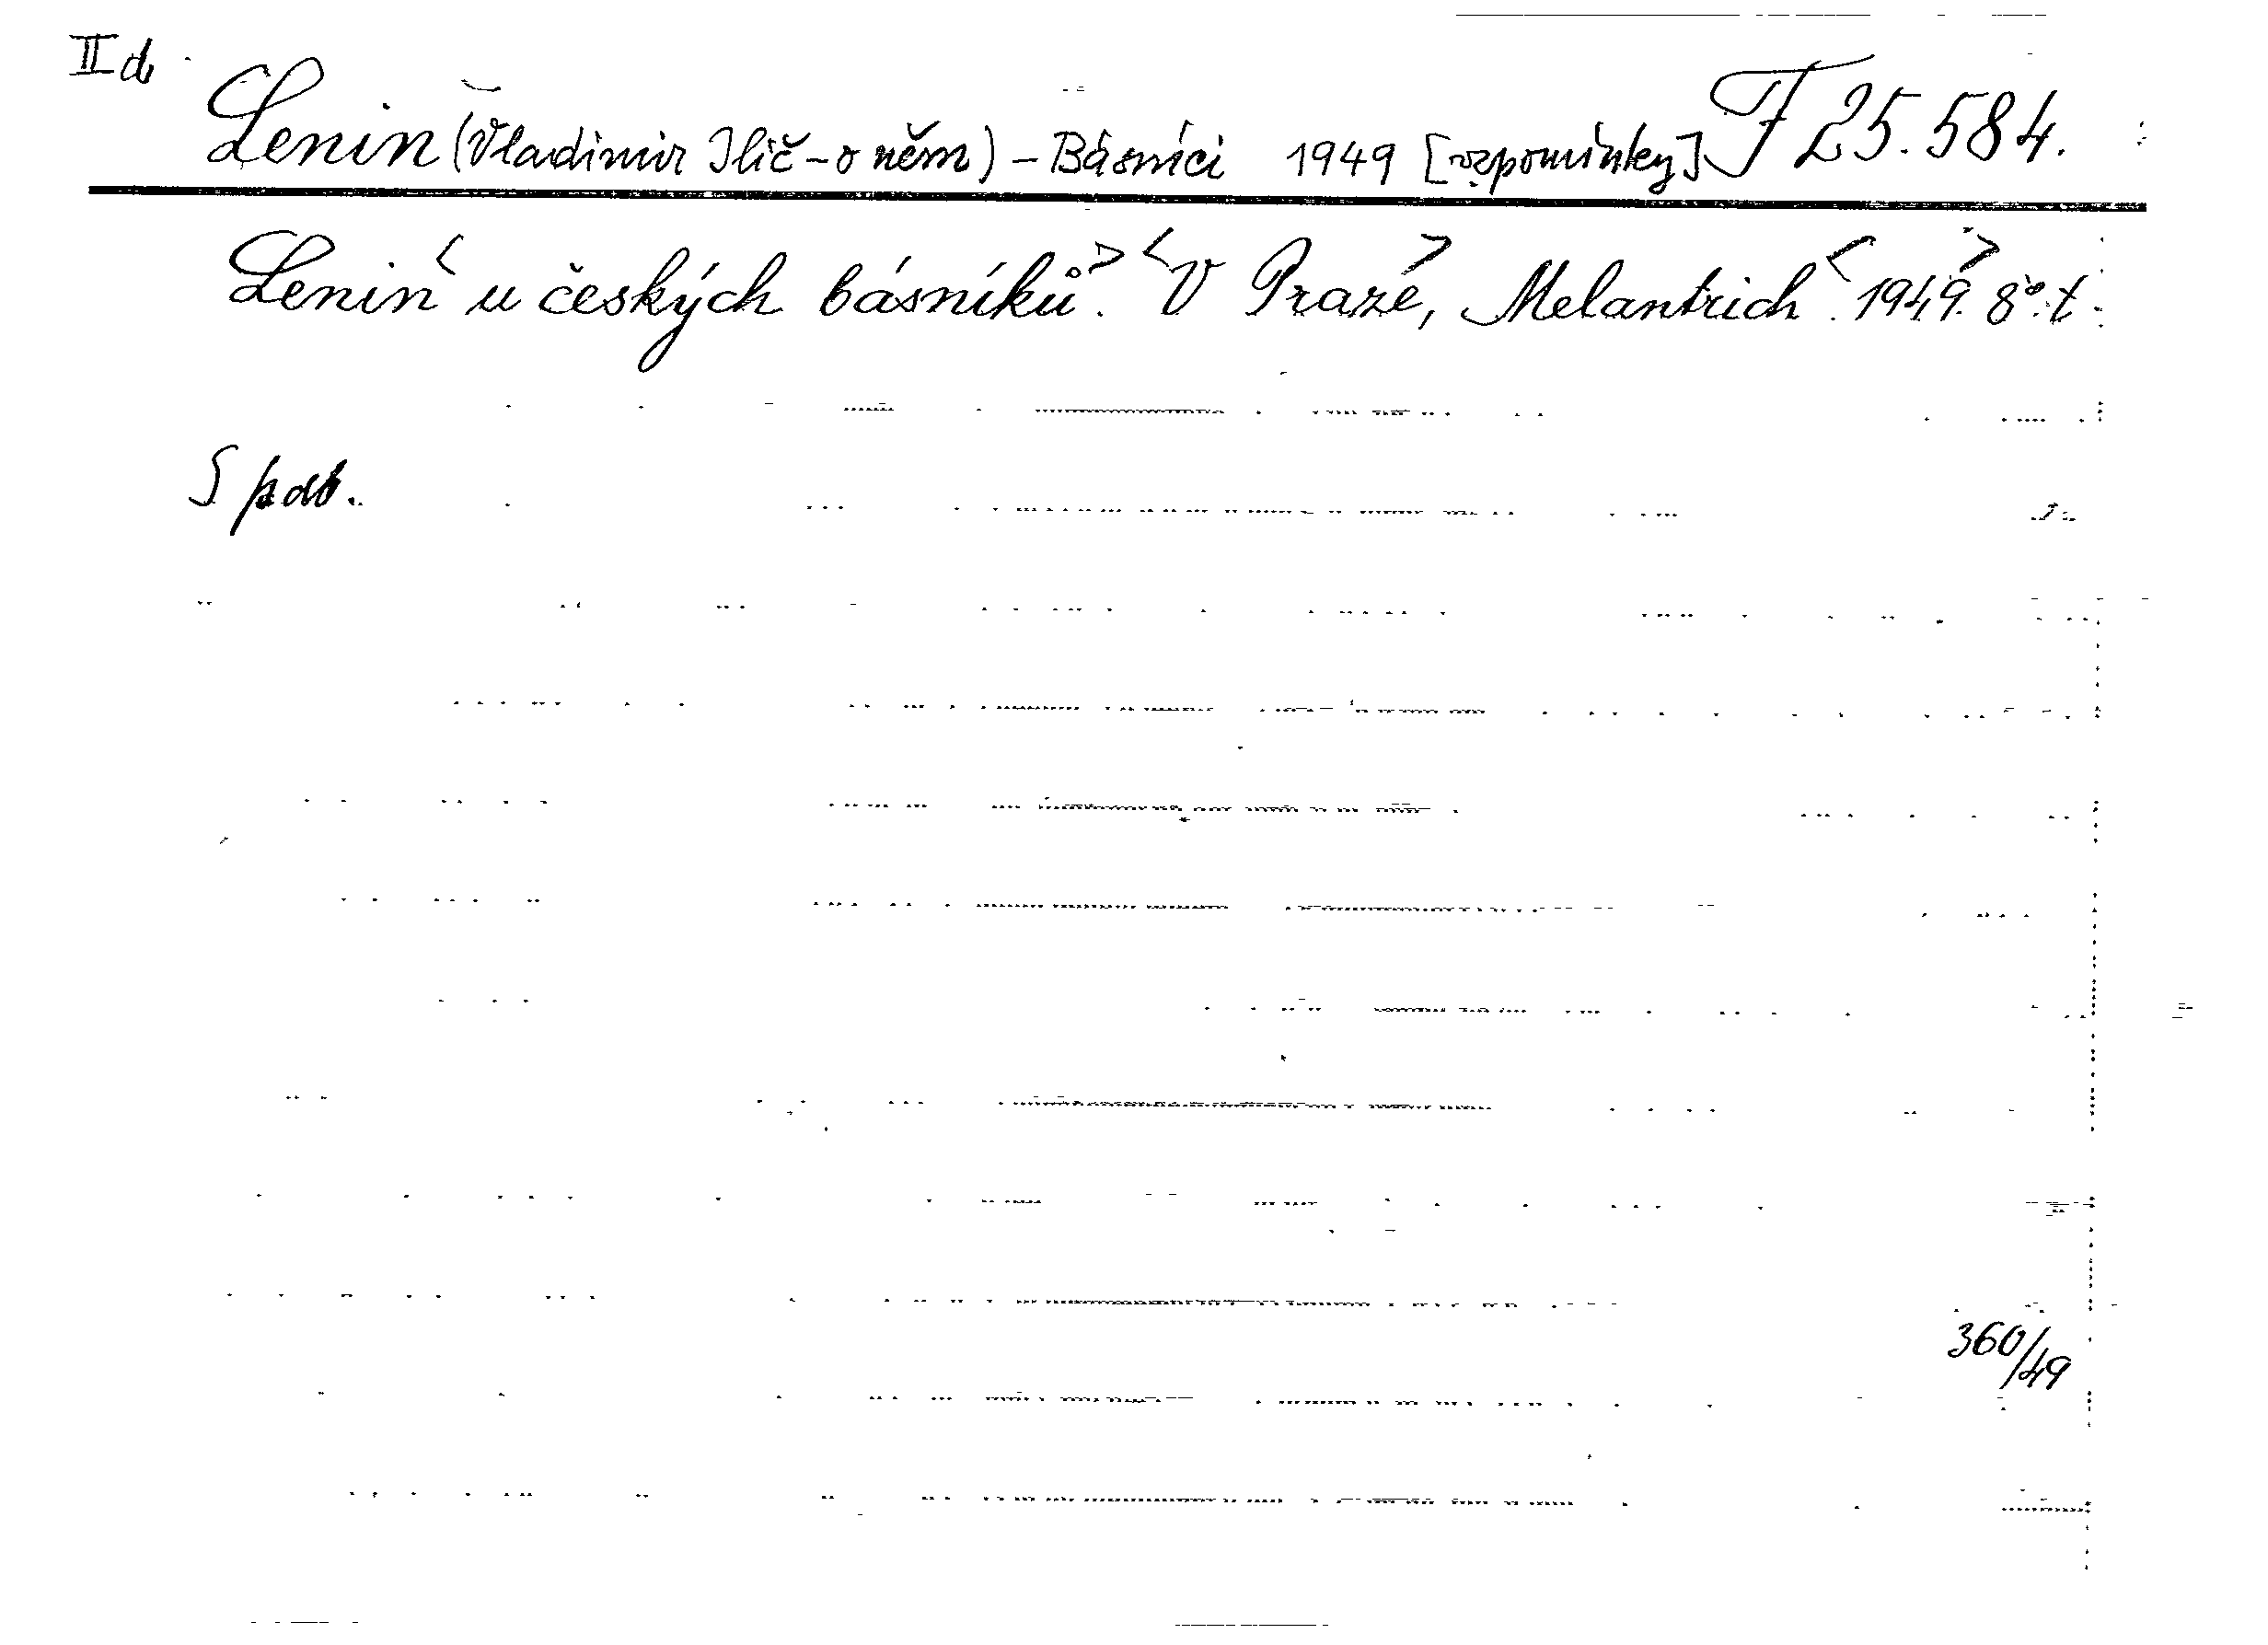 II d
Lenin (Vladimir Iljič - o něm) - Básníci 1949 [vzpomínky] F 25.584.
Lenin < u českých básníků.> <V Praze>, Melantrich <1949>. 8°. t.
S podob.
360/49